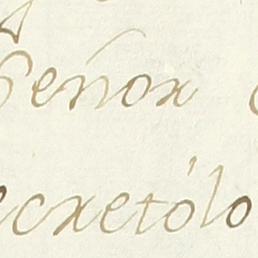 Señor
ecretólo